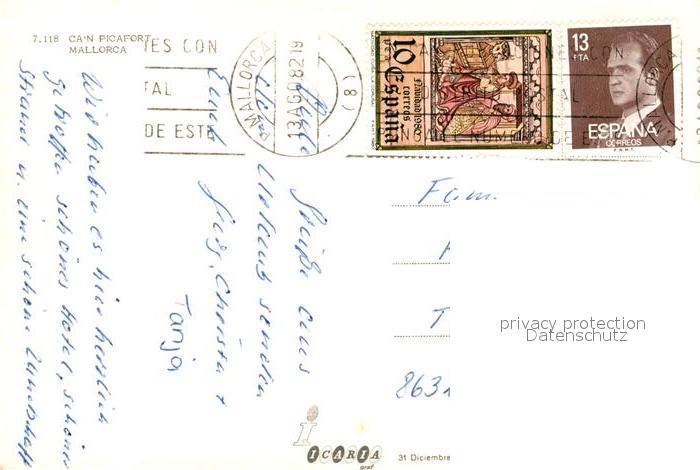 7.118 CA'N PICAFORT
MALLORCA
TES CON
TAL
DE ESTE
MALLORCA
13 AGO 82 19
(8)
10 PTA España
correos
13
PTA
ESPAÑA
CORREOS
F.N.M.T.
Liebe
Grüße aus
Urlaub senden
Euch
Christa +
Tanja
Wir haben es hier herrlich
getroffen schönes Hotel, schöner
Strand u. eine schöne Landschaft
Fam.
T
863
privacy protection
Datenschutz
ICARIA
graf
31 Diciembre